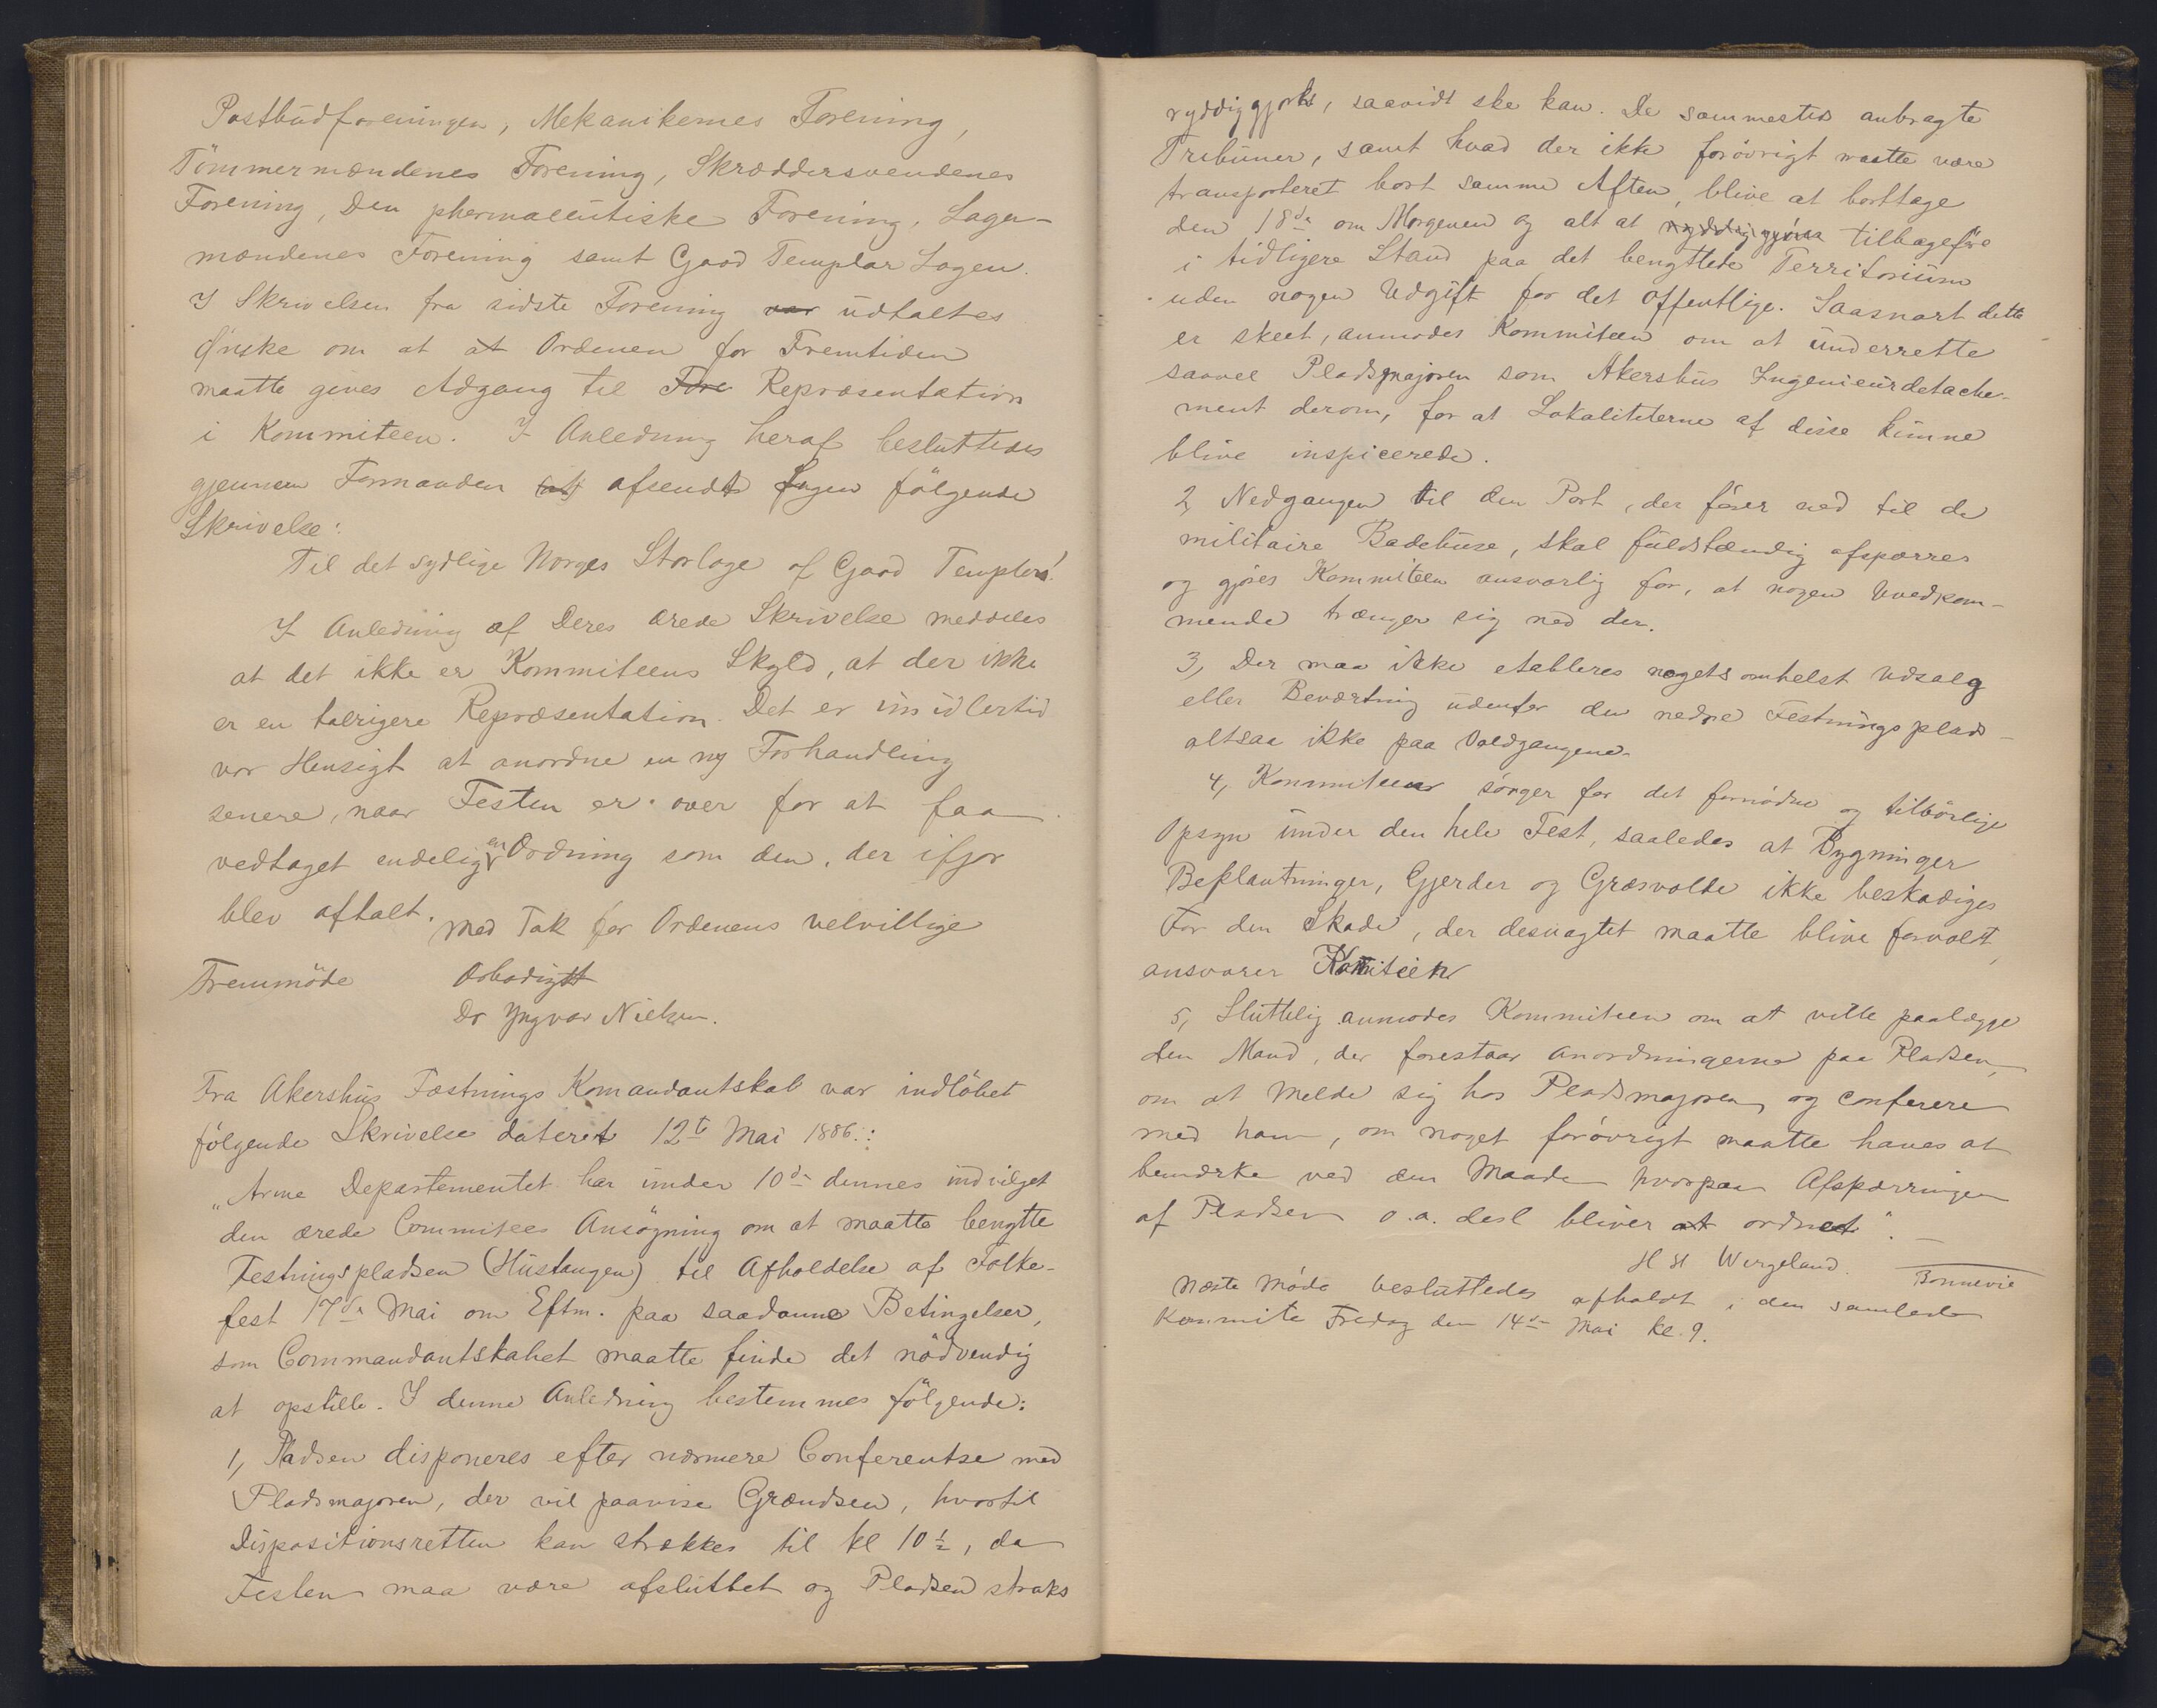 Postbudforeningen, Mekanikernes Forening,
Tömmermændenes Forening, Skræddersvendenes
Forening, Den pharmaceutiske Forening, Lager-
mændenes Forening samt Good Templar Logen.
I Skrivelsen fra sidste Forening var udtaltes
Ønske om at at Ordenen for Fremtiden
maatte gives Adgang til Fore Repræsentation
i Kommiteen. I Anledning heraf besluttedes
gjennem Formanden at afsendt Logen følgende
Skrivelse:
Til det sydlige Norges Storloge af Good Templars!
I Anledning af Deres ærede Skrivelse meddeles
at det ikke er Kommiteens Skyld, at der ikke
er en talrigere Repræsentation. Det er imidlertid
vor Hensigt at anordne en ny Forhandling
senere, naar Festen er over for at faa
vedtaget endelig en Ordning som den, der ifjor
blev aftalt. Med Tak for Ordenens velvillige
Fremmöde Ærbødigst
Dr Yngvar Nielsen.
Fra Akershus Fæstnings Komandantskab var indlöbet
følgende Skrivelse dateret 12te Mai 1886.:
„Arme Departementet har under 10de dennes indvilget
den ærede Commitees Ansögning om at maatte benytte
Festningspladsen (Hustangen) til Afholdelse af Folke-
fest 17de Mai om Eftm. paa saadanne Betingelser,
som Commandantskabet maatte finde det nödvendig
at opstille. I denne Anledning bestemmes fölgende:
1, Pladsen disponeres efter nærmere Conferentse med
Pladsmajoren, der vil paavise Grændsen, hvortil
Dispositionsretten kan strækkes til kl 10 ½, da
Festen maa være afsluttet og Pladsen straks
ryddiggjort, saavidt ske kan. De sammesteds anbragte
Tribuner, samt hvad der ikke forövrigt maatte være
transporteret bort samme Aften, blive at borttage
den 18de om Morgenen og alt at ryddiggjöres tilbageföre
i tidligere Stand paa det benyttede Territorium
uden nogen Udgift for det offentlige. Saasnart dette
er skeet, anmodes Kommiteen om at underrette
saavel Pladsmajoren som Akershus Ingenieurdetache-
ment derom, for at Lokaliteterne af disse kunne
blive inspicerede.
2, Nedgangen til den Port, der förer ned til de
militaire Badehuse, skal fuldstændig afspærres
og gjöres Kommiteen ansvarlig for, at nogen Uvedkom-
mende trænger sig ned der.
3, Der maa ikke etableres nogetsomhelst Udsalg
eller Beværtning udenfor den nedre Festningsplads
altsaa ikke paa Voldgangene.
4, Kommiteen sörger for det fornödne og tilbörlige
Opsyn under den hele Fest, saaledes at Bygninger
Beplantninger, Gjerder og Græsvolde ikke beskadiges
For den Skade, der desuagtet maatte blive forvoldt,
ansvarer Komiteen
5, Sluttelig anmodes Kommiteen om at ville paalægge
den Mand, der forestaar Anordningerne paa Pladsen,
om at melde sig hos Pladsmajoren og conferere
med ham, om noget forövrigt maatte haves at
bemærke ved den Maade hvorpaa Afspærringen
af Pladsen o.a. desl bliver at ordnet".
H H Wergeland.
Bonnevie
Næste Möde besluttedes afholdt i den samlede
Kommite Fredag den 14de Mai kl. 9.